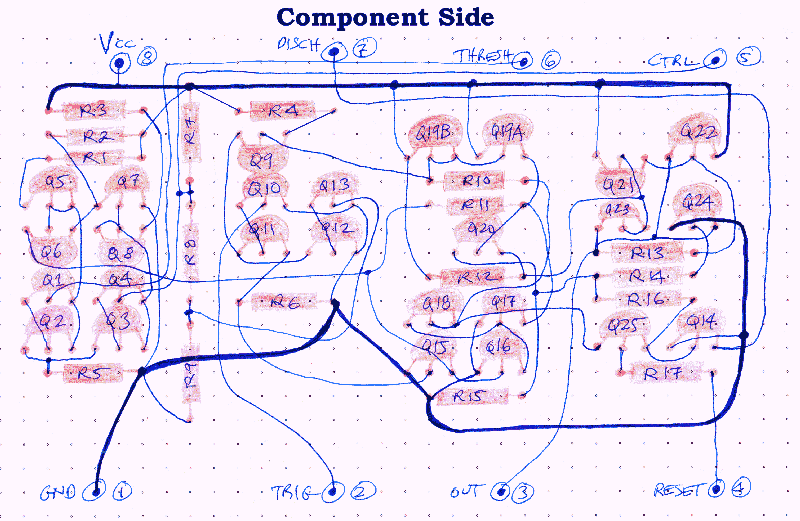 Component Side
Vcc 8 DISCH 7 THRESH 6 CTRL 5
R3 R7 R4
R2 Q19B Q19A Q22
R1 Q9
Q5 Q7 Q10 Q13 R10 Q21
R11 Q23 Q24
Q11 Q12 Q20
Q6 Q8 R8 R13
Q1 Q4 R12 R14
R6 Q18 Q17 R16
Q2 Q3 Q25 Q14
Q15 Q16
R5 R9 R17
R15
GND 1 TRIG 2 OUT 3 RESET 4